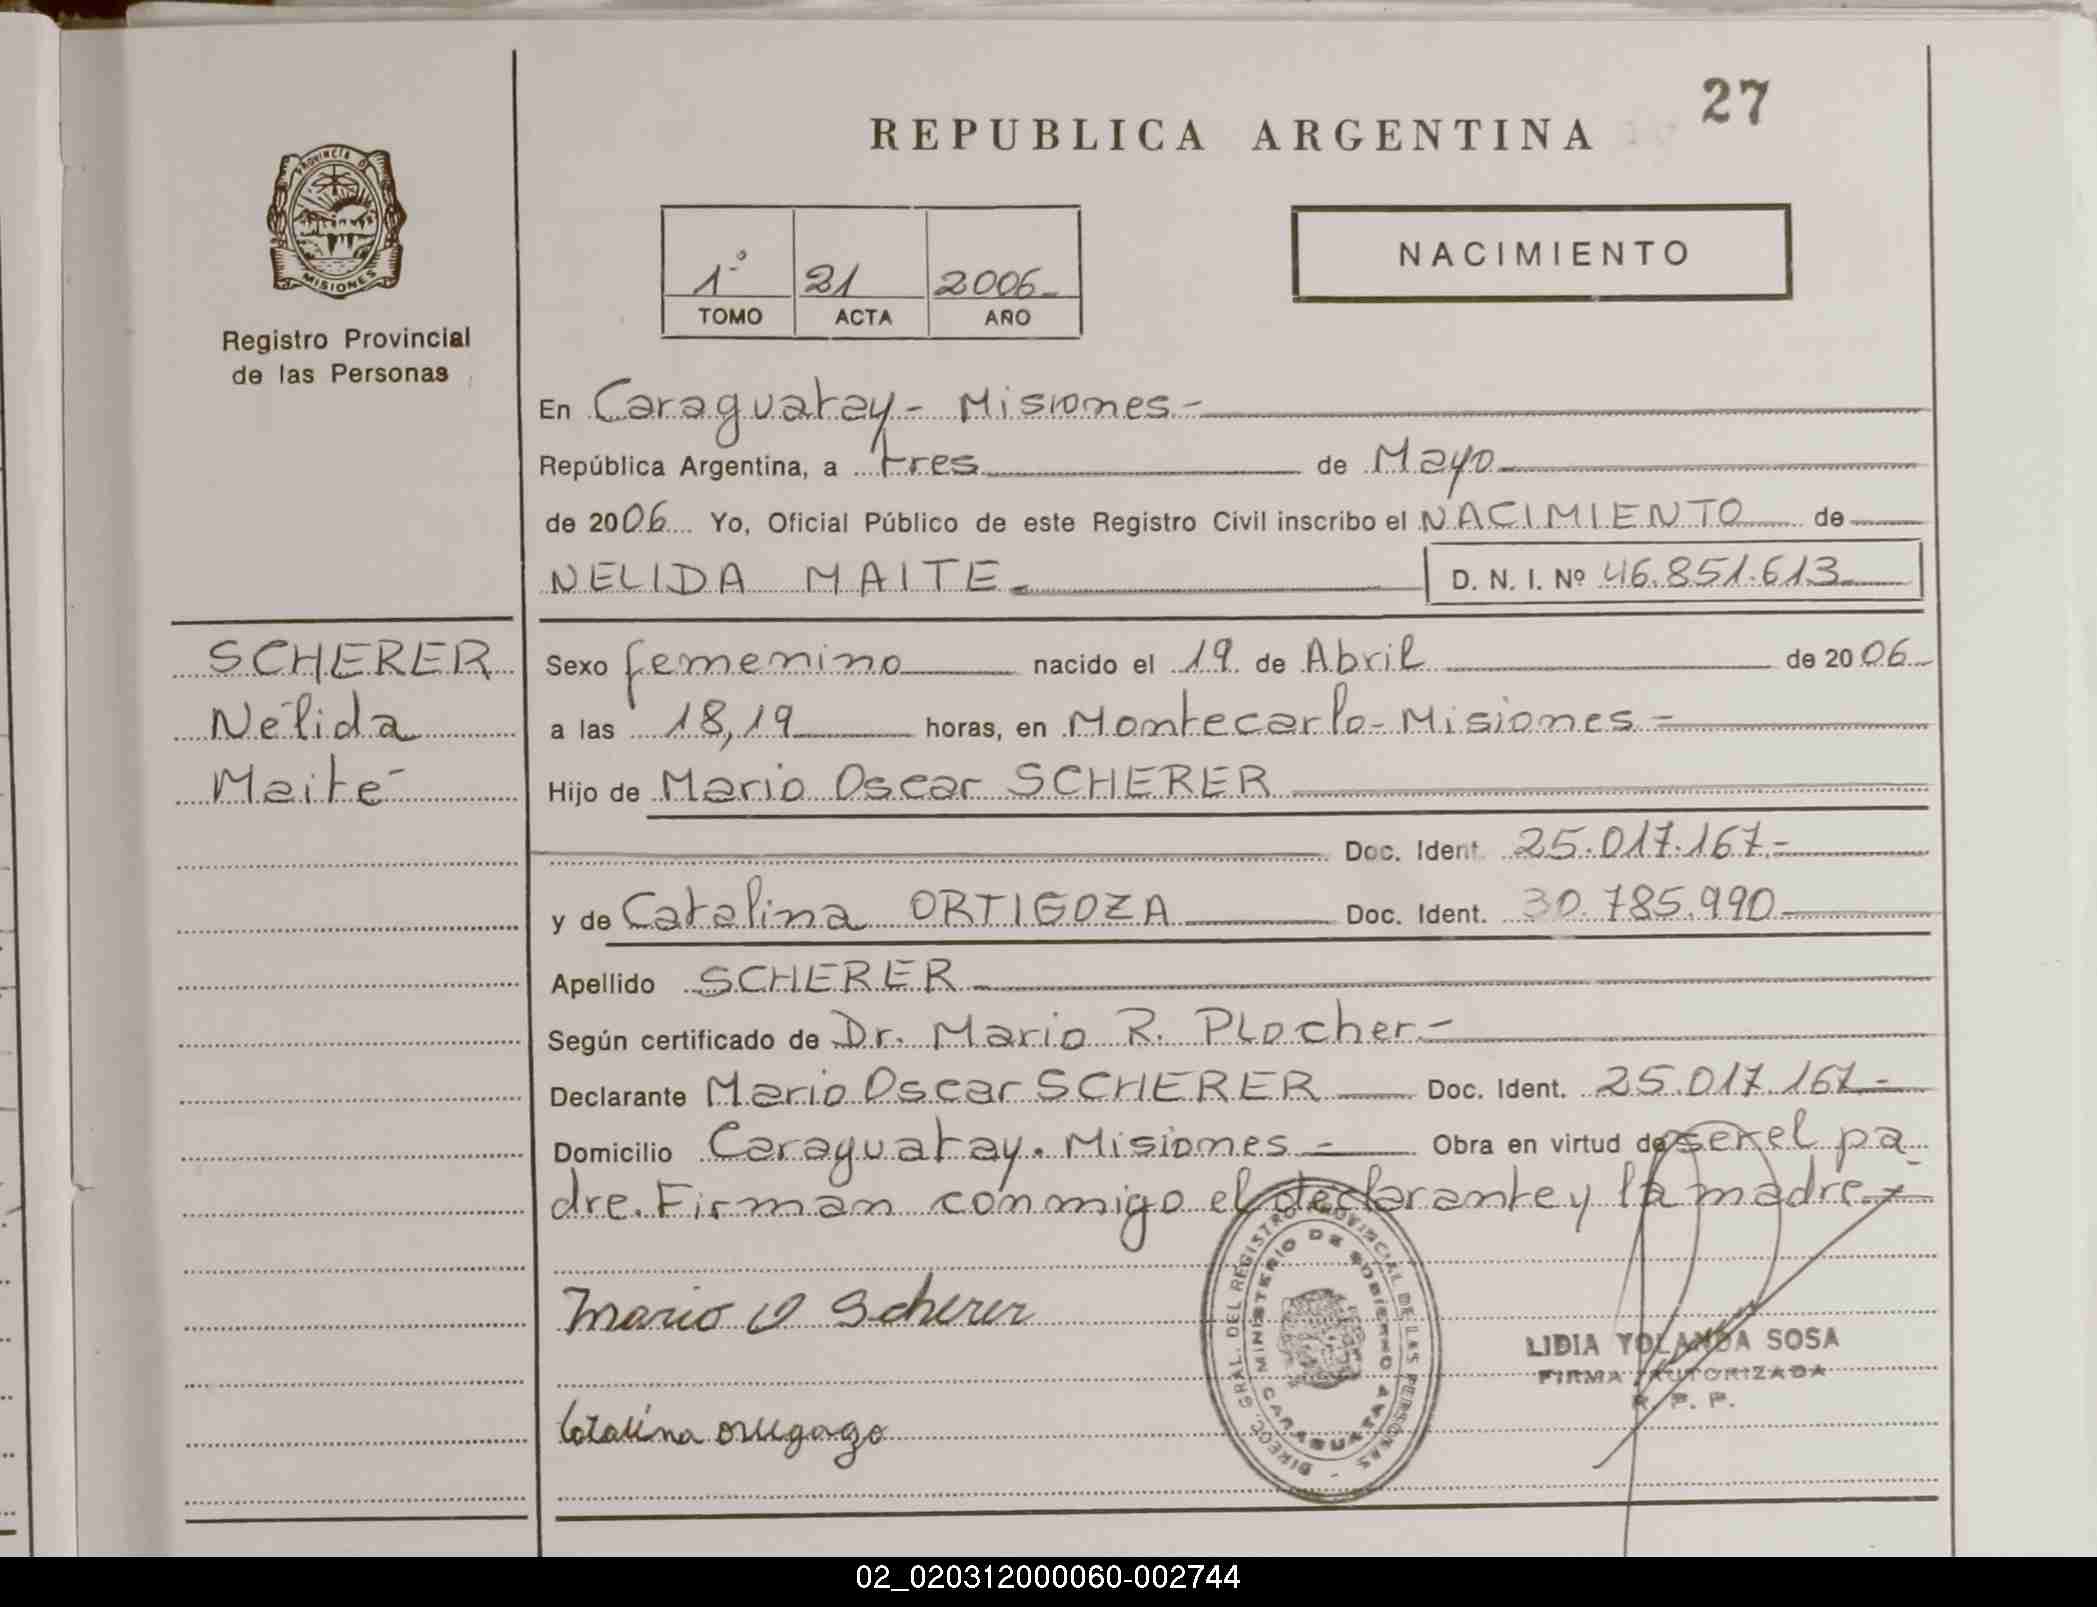 27
REPUBLICA ARGENTINA
PROVINCIA DE
MISIONES
Registro Provincial
de las Personas
NACIMIENTO
1º 21 2006-
TOMO ACTA AÑO
En Caraguatay - Misiones -
República Argentina, a tres de Mayo
de 2006 Yo, Oficial Público de este Registro Civil inscribo el NACIMIENTO de
NELIDA MAITE D. N. I. Nº 46.851.613
SCHERER
Nélida
Maite
Sexo femenino nacido el 19 de Abril de 2006
a las 18,19 horas, en Montecarlo - Misiones -
Hijo de Mario Oscar SCHERER
Doc. Ident. 25.017.167.-
y de Catalina ORTIGOZA Doc. Ident. 30.785.990
Apellido SCHERER
Según certificado de Dr. Mario R. Plocher -
Declarante Mario Oscar SCHERER Doc. Ident. 25.017.167 -
Domicilio Caraguatay. Misiones - Obra en virtud de ser el pa
dre. Firman conmigo el declarante y la madre.-
Mario O Scherer
DIRECC. GRAL. DEL REGISTRO PROVINCIAL DE LAS PERSONAS -
MINISTERIO DE GOBIERNO
CARAGUATAY
LIDIA YOLANDA SOSA
FIRMA AUTORIZADA
R. P. P.
Catalina
02_020312000060-002744